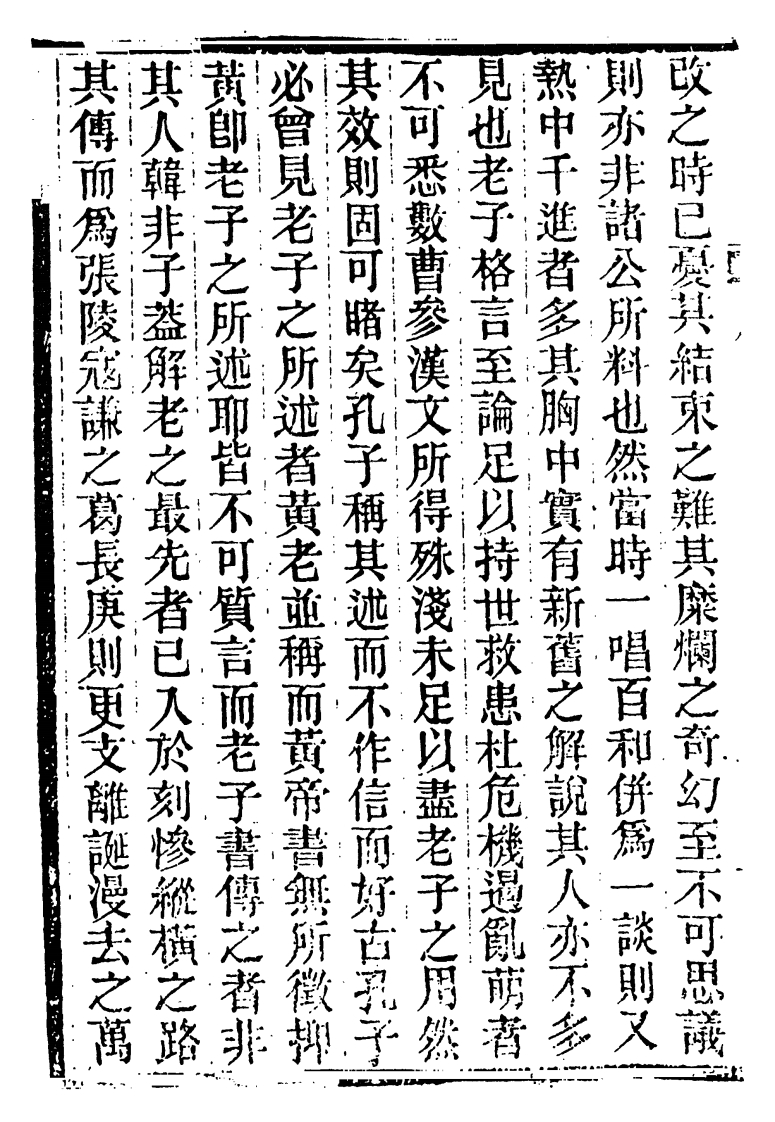 改之時已憂其結束之難其糜爛之奇幻至不可思議
則亦非諸公所料也然當時一唱百和併爲一談則又
熱中干進者多其胸中實有新舊之解說其人亦不多
見也老子格言至論足以持世救患杜危機遏亂萌者
不可悉數曹參漢文所得殊淺未足以盡老子之用然
其效則固可睹矣孔子稱其述而不作信而好古孔子
必曾見老子之所述者黃老並稱而黃帝書無所徵抑
黃卽老子之所述耶皆不可質言而老子書傳之者非
其人韓非子葢解老之最先者已入於刻慘縱橫之路
其傳而爲張陵寇謙之葛長庚則更支離誕漫去之萬